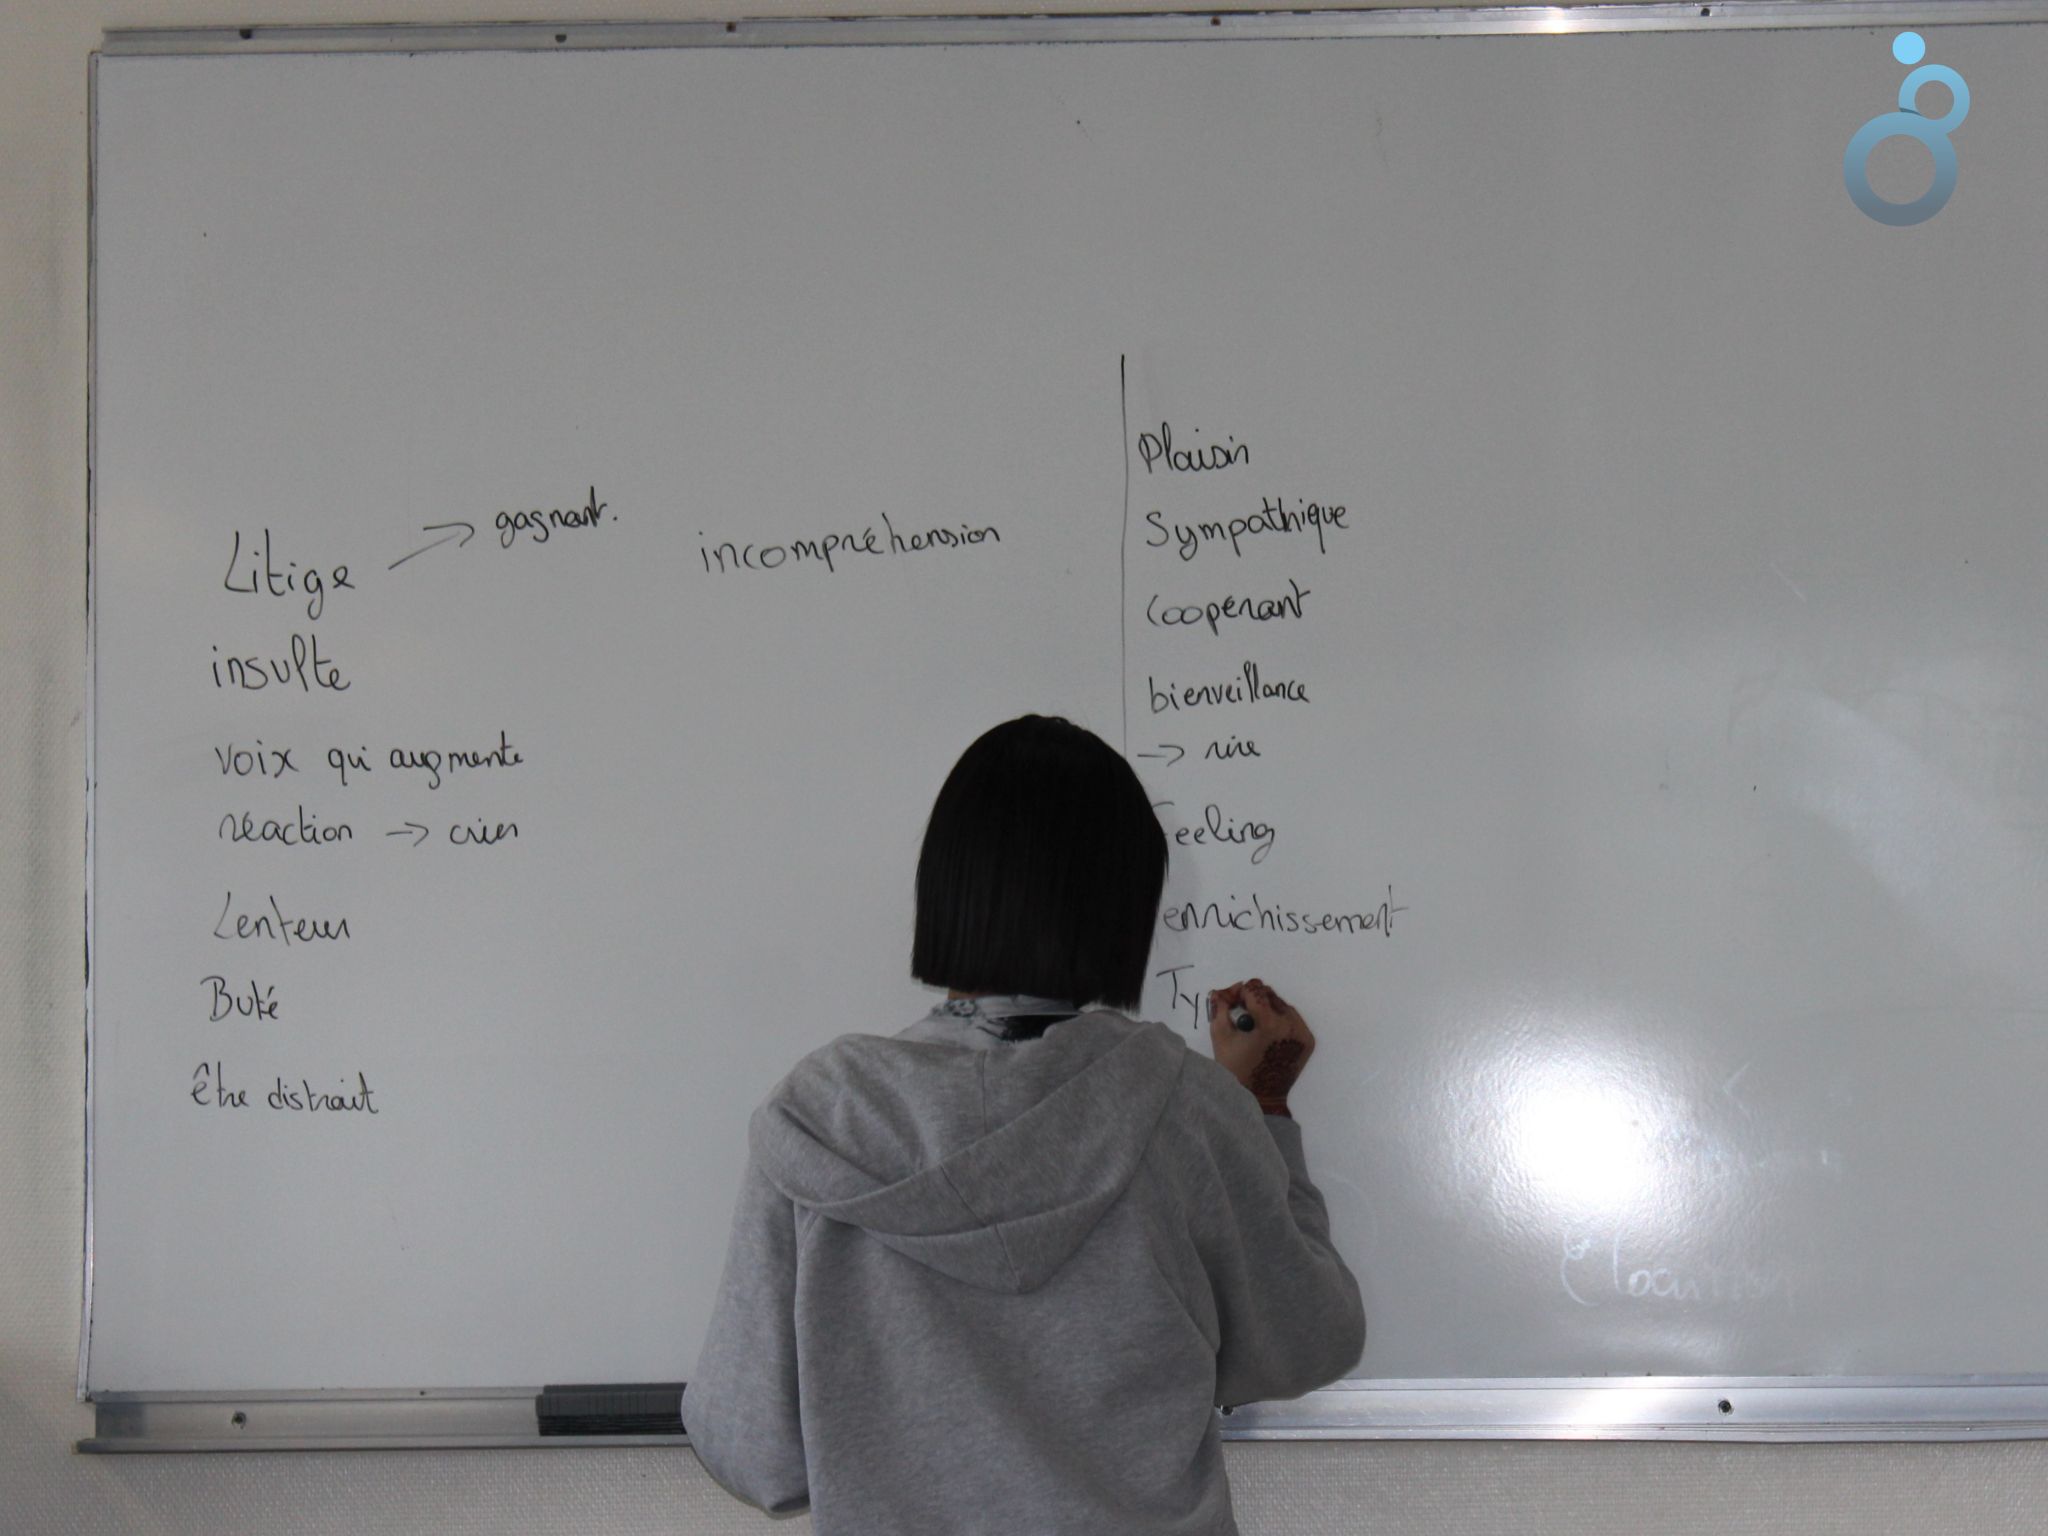 Litige → gagnant.
incompréhension
insulte
voix qui augmente
réaction → crier
Lenteur
Buté
être distrait
Plaisir
Sympathique
Coopérant
bienveillance
→ rire
Feeling
enrichissement
Ty